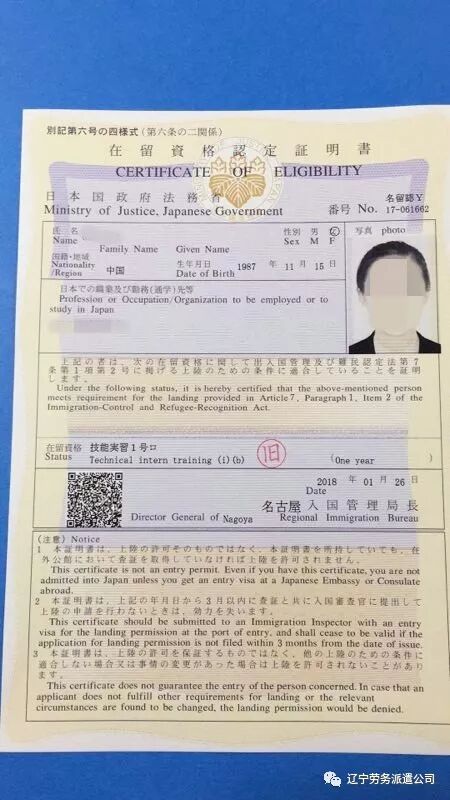 別記第六号の四様式(第六条の二関係)
在留資格認定証明書
CERTIFICATE OF ELIGIBILITY
日本国政府法務省
Ministry of Justice, Japanese Government
名留認Y
番号 No. 17-061662
氏名
Name
Family Name Given Name
性別 男 女
Sex M F
写真 photo
国籍・地域
Nationality/Region 中国
生年月日 1987 年 11 月 15 日
Date of Birth
日本での職業及び勤務(通学)先等
Profession or Occupation/Organization to be employed or to
study in Japan
上記の者は、次の在留資格に関して出入国管理及び難民認定法第7
条第1項第2号に掲げる上陸のための条件に適合していることを証明
します。
Under the following status, it is hereby certified that the above-mentioned person
meets requirement for the landing provided in Article 7, Paragraph 1, Item 2 of the
Immigration-Control and Refugee-Recognition Act.
在留資格 技能実習1号ロ
Status Technical intern training (i)(b) 旧 (One year )
2018 年 01 月 26 日
Date
名古屋 入国管理局長
Director General of Nagoya Regional Immigration Bureau
(注意) Notice
1 本証明書は、上陸の許可そのものではなく、本証明書を所持していても、在
外公館において査証を取得していなければ上陸を許可されません。
This certificate is not an entry permit. Even if you have this certificate, you are not
admitted into Japan unless you get an entry visa at a Japanese Embassy or Consulate
abroad.
2 本証明書は、上記の年月日から3月以内に査証と共に入国審査官に提出して
上陸の申請を行わないときは、効力を失います。
This certificate should be submitted to an Immigration Inspector with an entry
visa for the landing permission at the port of entry, and shall cease to be valid if the
application for landing permission is not filed within 3 months from the date of issue.
3 本証明書は、上陸の許可を保証するものではなく、他の上陸のための条件に
適合しない場合又は事情の変更があった場合は上陸を許可されないことがあり
ます。
This certificate does not guarantee the entry of the person concerned. In case that an
applicant does not fulfill other requirements for landing or the relevant
circumstances are found to be changed, the landing permission would be denied.
辽宁劳务派遣公司